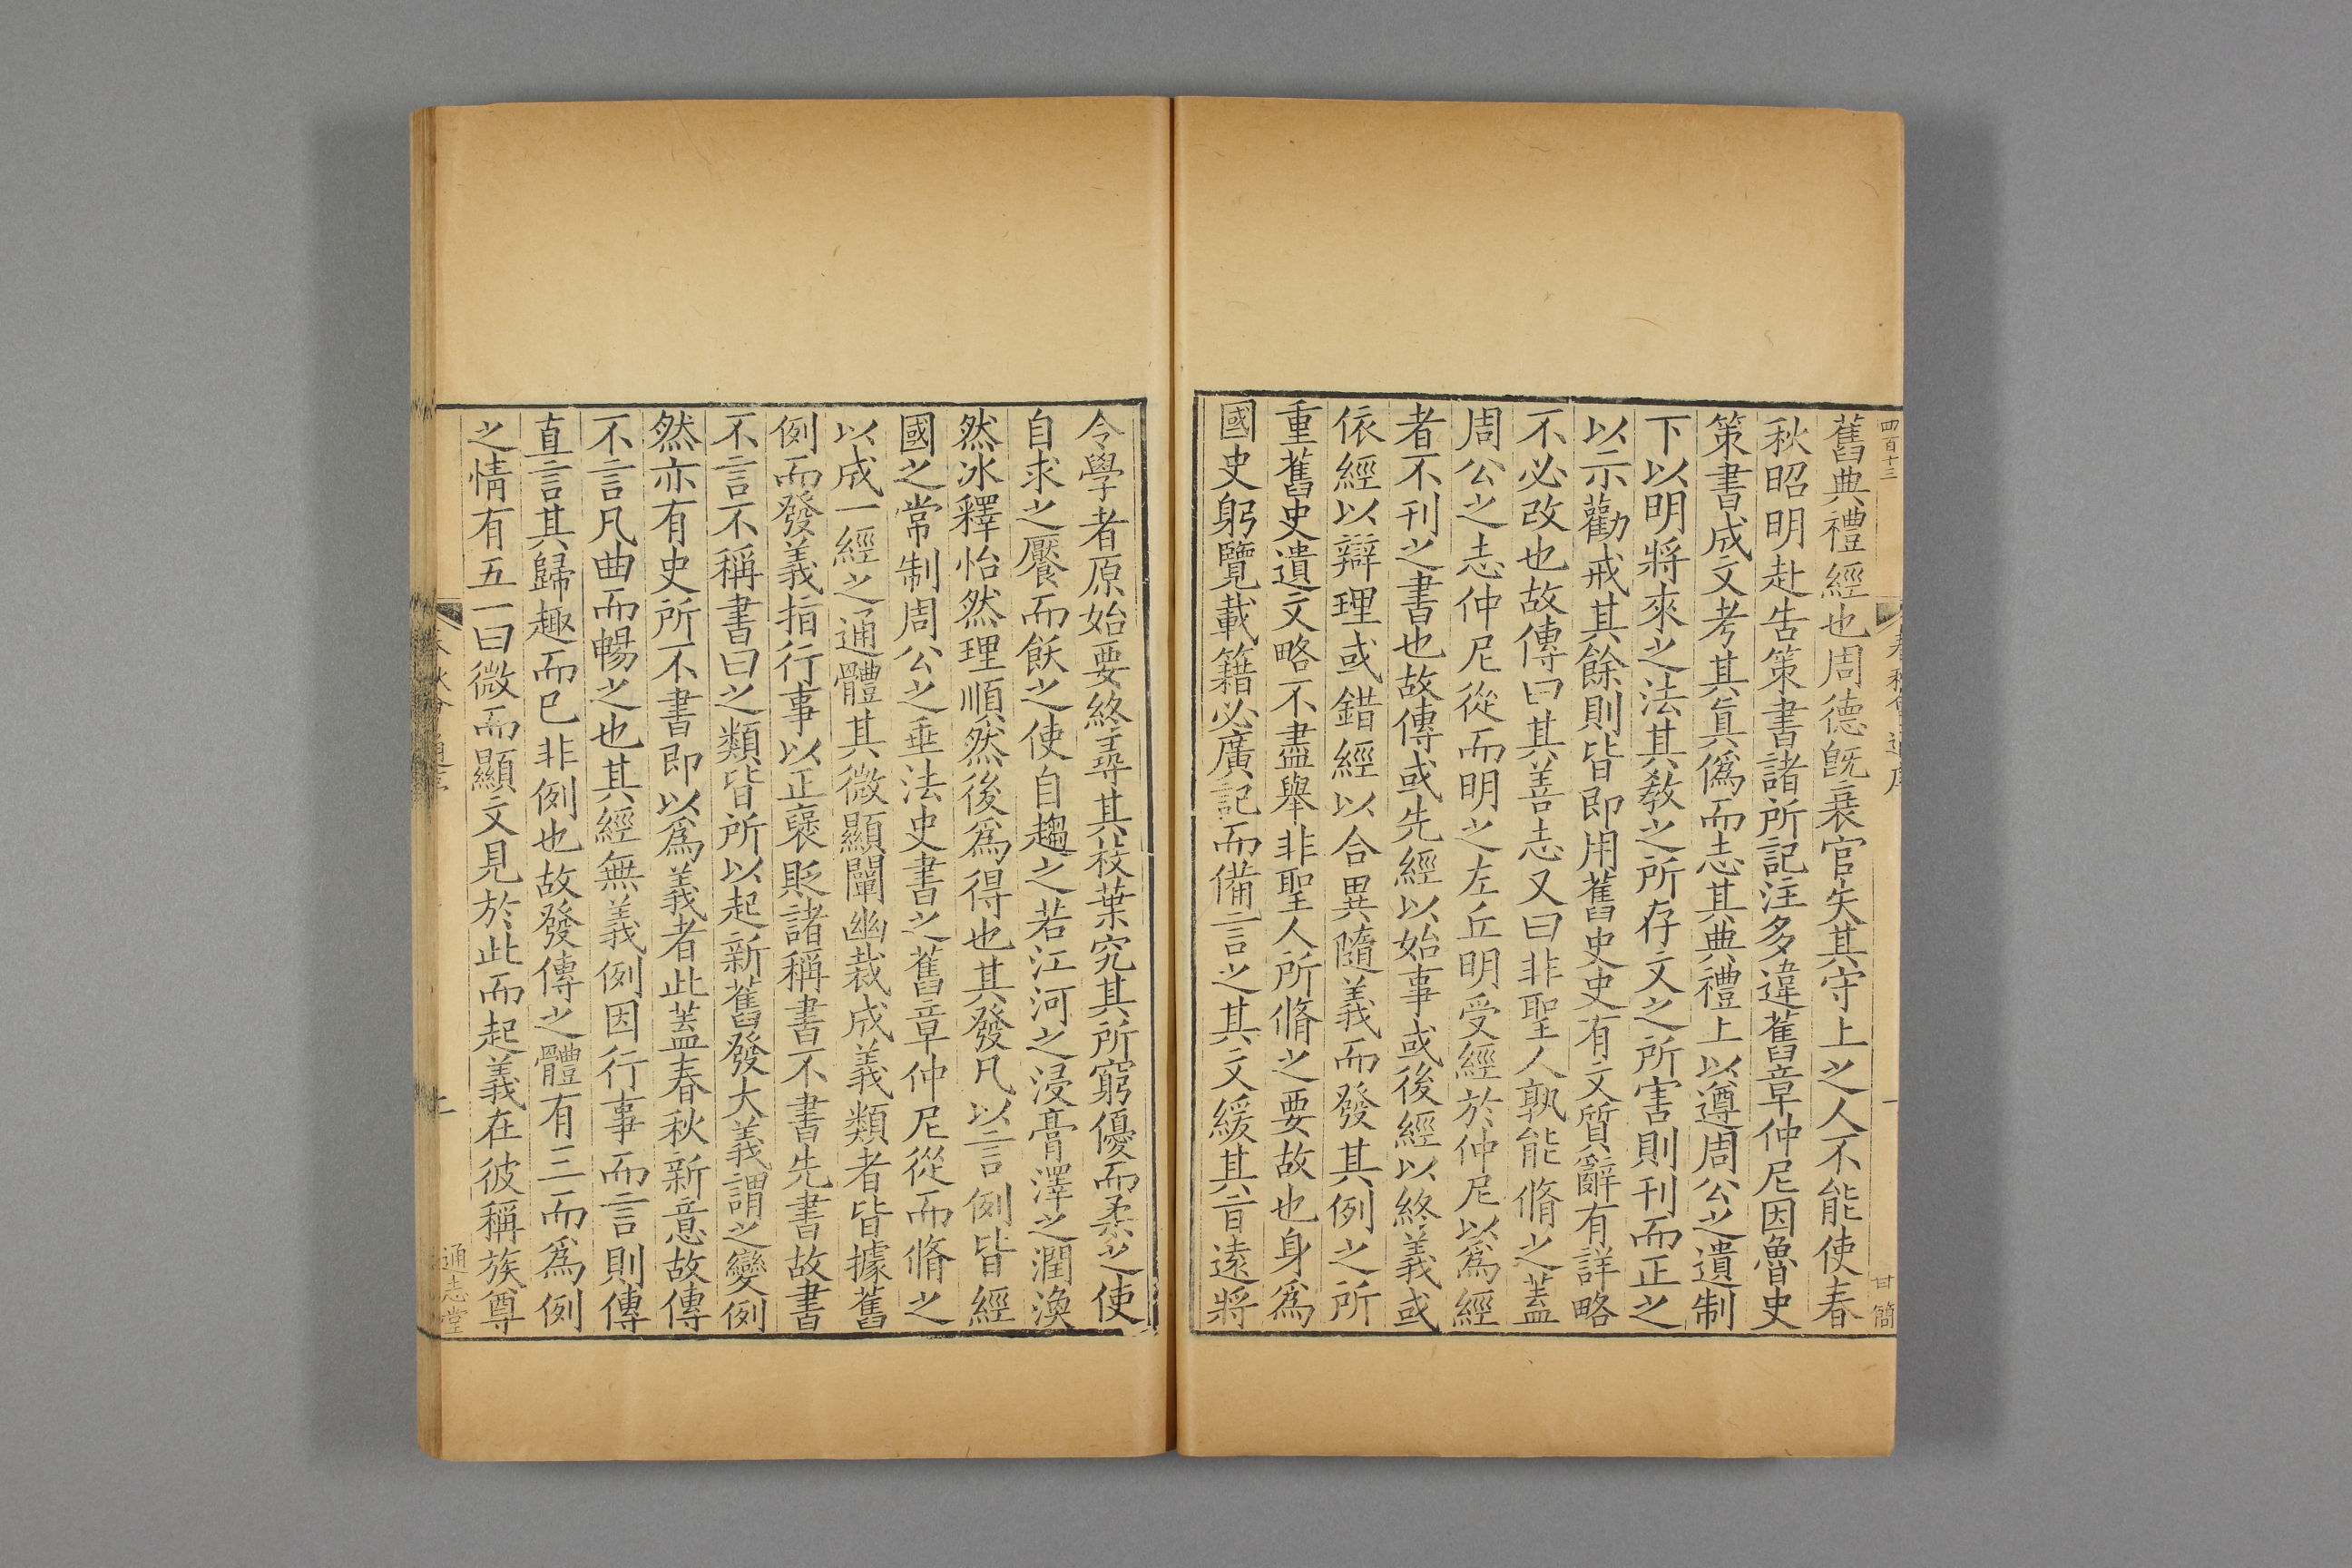 四百十三
舊典禮經也周德旣衰官失其守上之人不能使春
秋昭明赴告策書諸所記注多違舊章仲尼因魯史
策書成文考其眞僞而志其典禮上以遵周公之遺制
下以明將來之法其敎之所存文之所害則刊而正之
以示勸戒其餘則皆即用舊史史有文質辭有詳略
不必改也故傳曰其善志又曰非聖人孰能脩之蓋
周公之志仲尼從而明之左丘明受經於仲尼以爲經
者不刊之書也故傳或先經以始事或後經以終義或
依經以辯理或錯經以合異隨義而發其例之所
重舊史遺文略不盡舉非聖人所脩之要故也身爲
國史躬覽載籍必廣記而備言之其文緩其旨遠將
令學者原始要終尋其枝葉究其所窮優而柔之使
自求之饜而飫之使自趨之若江河之浸膏澤之潤渙
然冰釋怡然理順然後爲得也其發凡以言例皆經
國之常制周公之垂法史書之舊章仲尼從而脩之
以成一經之通體其微顯闡幽裁成義類者皆據舊
例而發義指行事以正襃貶諸稱書不書先書故書
不言不稱書曰之類皆所以起新舊發大義謂之變例
然亦有史所不書即以爲義者此蓋春秋新意故傳
不言凡曲而暢之也其經無義例因行事而言則傳
直言其歸趣而已非例也故發傳之體有三而爲例
之情有五一曰微而顯文見於此而起義在彼稱族尊
通志堂